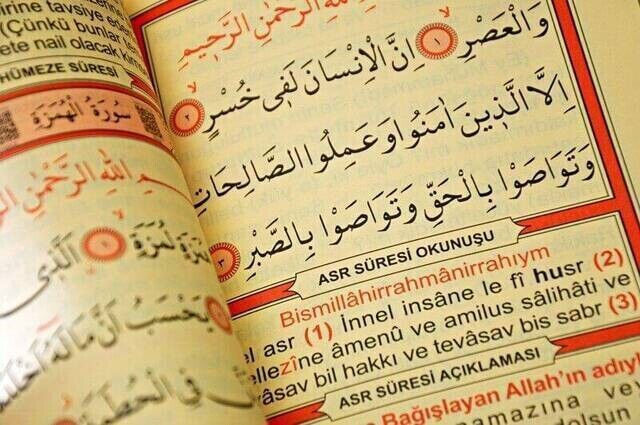 irine tavsiye eder
(Çünkü bunlar
ete nail olacak
HÜMEZE SÛRESİ
سُورَةُ الْهُمَزَةِ
اللهِ الرَّحْمٰنِ الرَّ
لُمَزَةٍ ١ اَلَّذٖى
يَحْسَبُ اَنَّ مَالَهُٓ
فِى الْحُطَمَةِ
اللهِ الرَّحْمٰنِ الرَّحٖيمِ
وَالْعَصْرِ ١ اِنَّ الْاِنْسَانَ لَفٖى خُسْرٍ ٢
اِلَّا الَّذٖينَ اٰمَنُوا وَعَمِلُوا الصَّالِحَاتِ
وَتَوَاصَوْا بِالْحَقِّ وَتَوَاصَوْا بِالصَّبْرِ ٣
ASR SÛRESİ OKUNUŞU
Bismillâhirrahmânirrahıym
el asr (1) İnnel insâne le fî husr (2)
ellezîne âmenû ve amilus sâlihâti ve
vâsav bil hakkı ve tevâsav bis sabr (3)
ASR SÛRESİ AÇIKLAMASI
Bağışlayan Allah'ın adıyl
namazına ve
dolsun